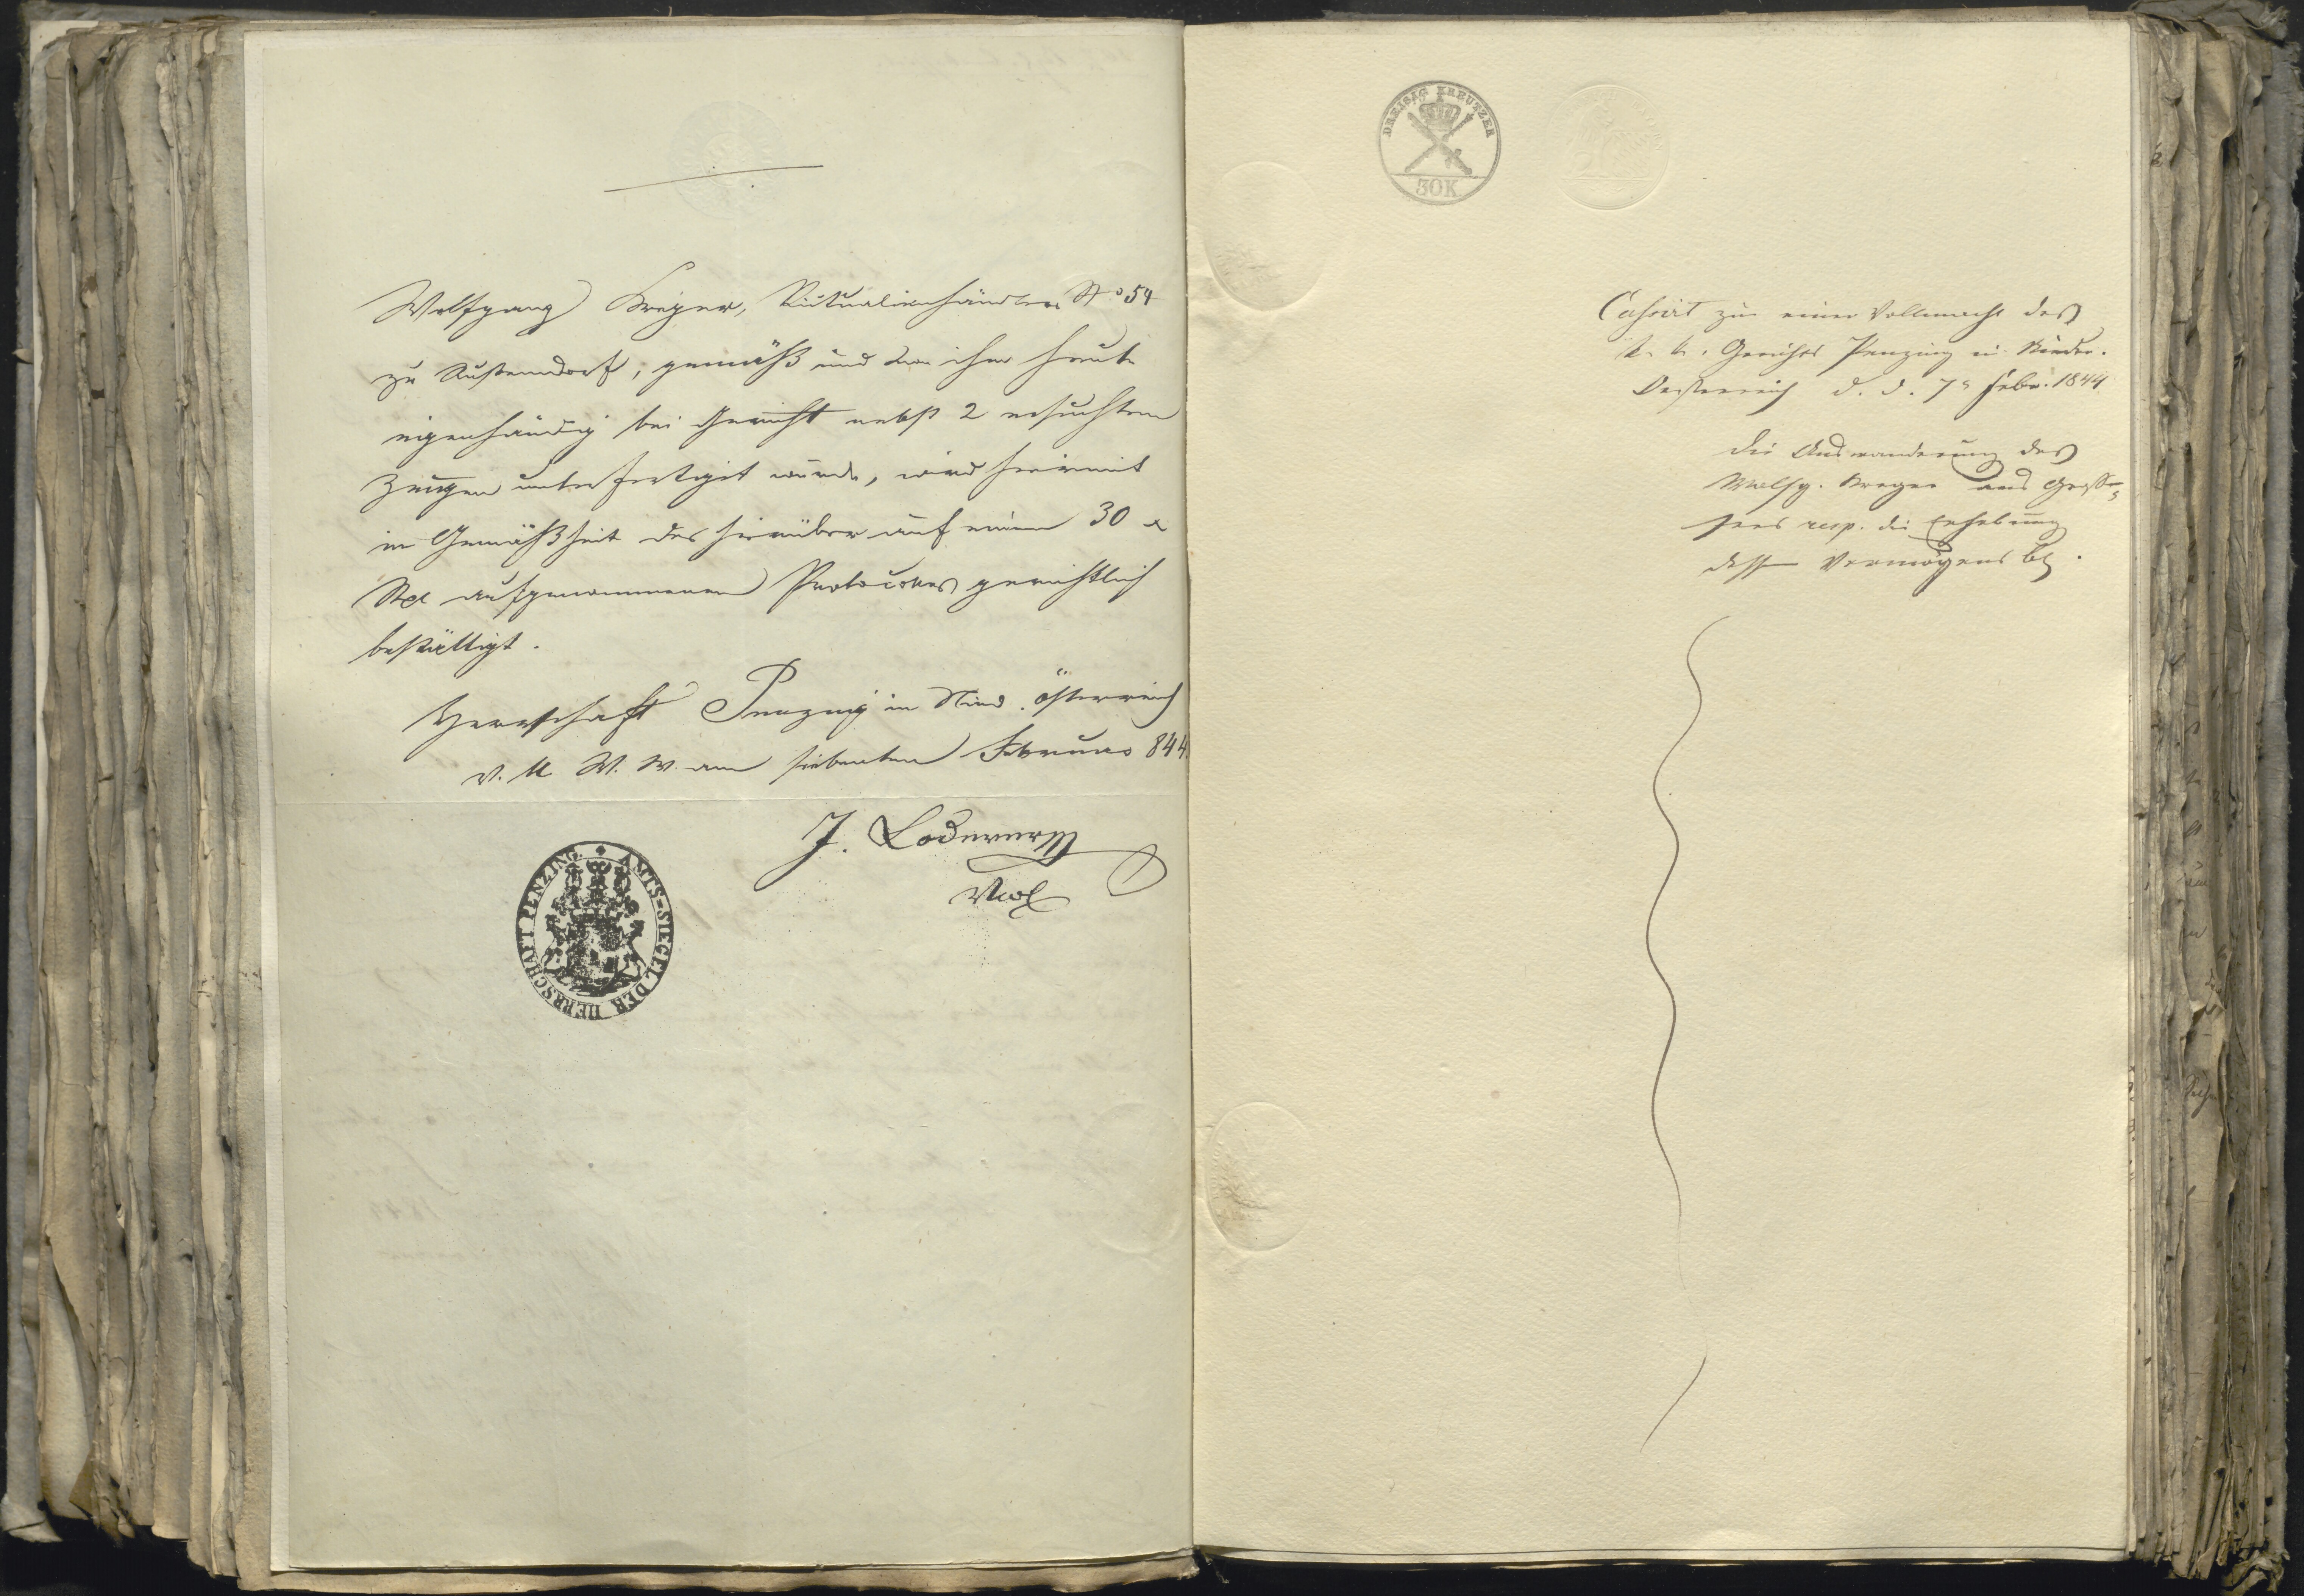 Wolfgang Kreger, Victualienhändler No 54
zu Rustendorf, gemäß und von ihm heute
eigenhändig bei Gericht nebst 2 ersuchten
Zeugen unterfertiget wurde, wird hiermit
in Gemäßheit des hierüber auf einem 30 x
aufgenommenen Protocolles gerichtlich
bestättigt.
Herrschaft Penzing in Nied. österreich
V. U. W. W. am siebenten Februar 844.
J. Loderer
AMTS-SIEGEL DER HERRSCHAFT PENZING.
DREISIG KREUTZER
30K
zu einer Vollmacht des
k. k. Gerichts Penzing in Nieder-
Oesterreich d. d. 7n Febr. 1844
die Auswanderung des
Wolfg. Kreger aus
resp. die Erhebung
dessen Vermögens